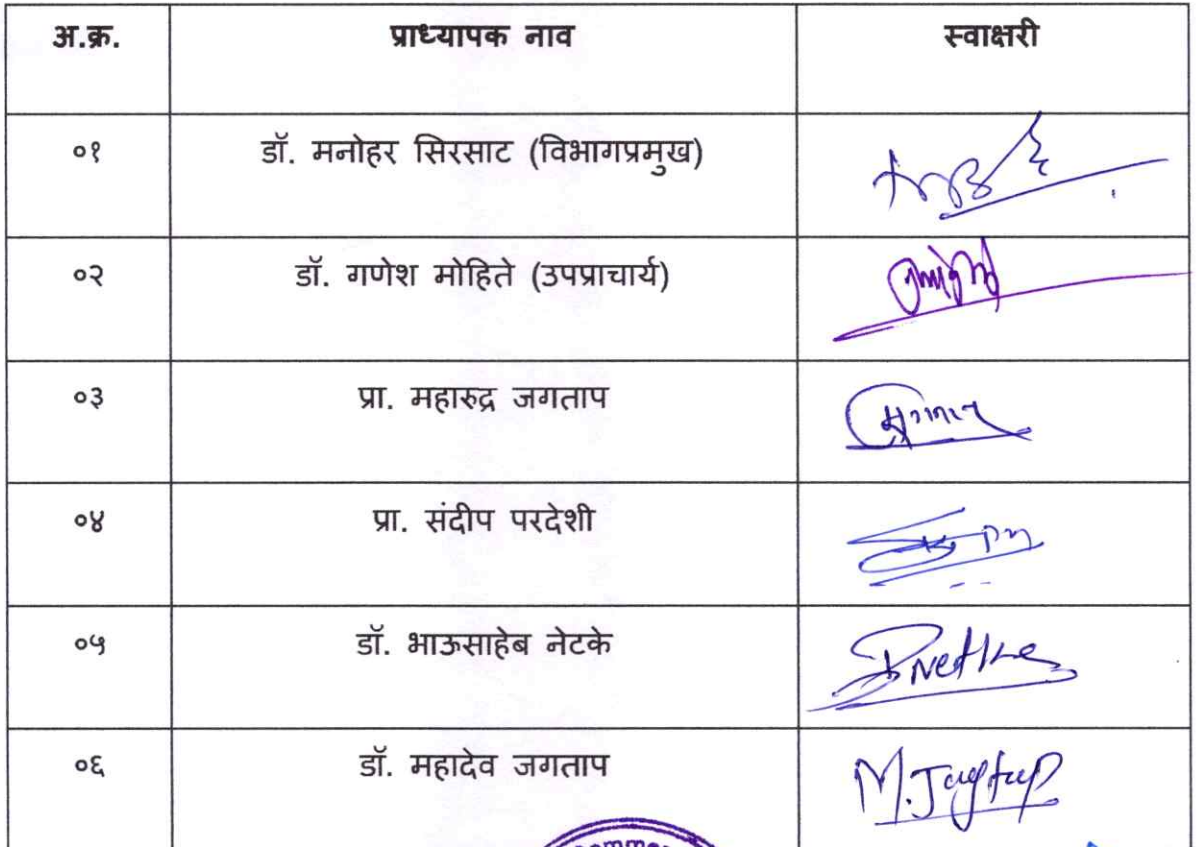 अ.क्र. प्राध्यापक नाव स्वाक्षरी
०१ डॉ. मनोहर सिरसाट (विभागप्रमुख)
०२ डॉ. गणेश मोहिते (उपप्राचार्य)
०३ प्रा. महारुद्र जगताप
०४ प्रा. संदीप परदेशी
०५ डॉ. भाऊसाहेब नेटके Bnetke
०६ डॉ. महादेव जगताप M.Jagtap